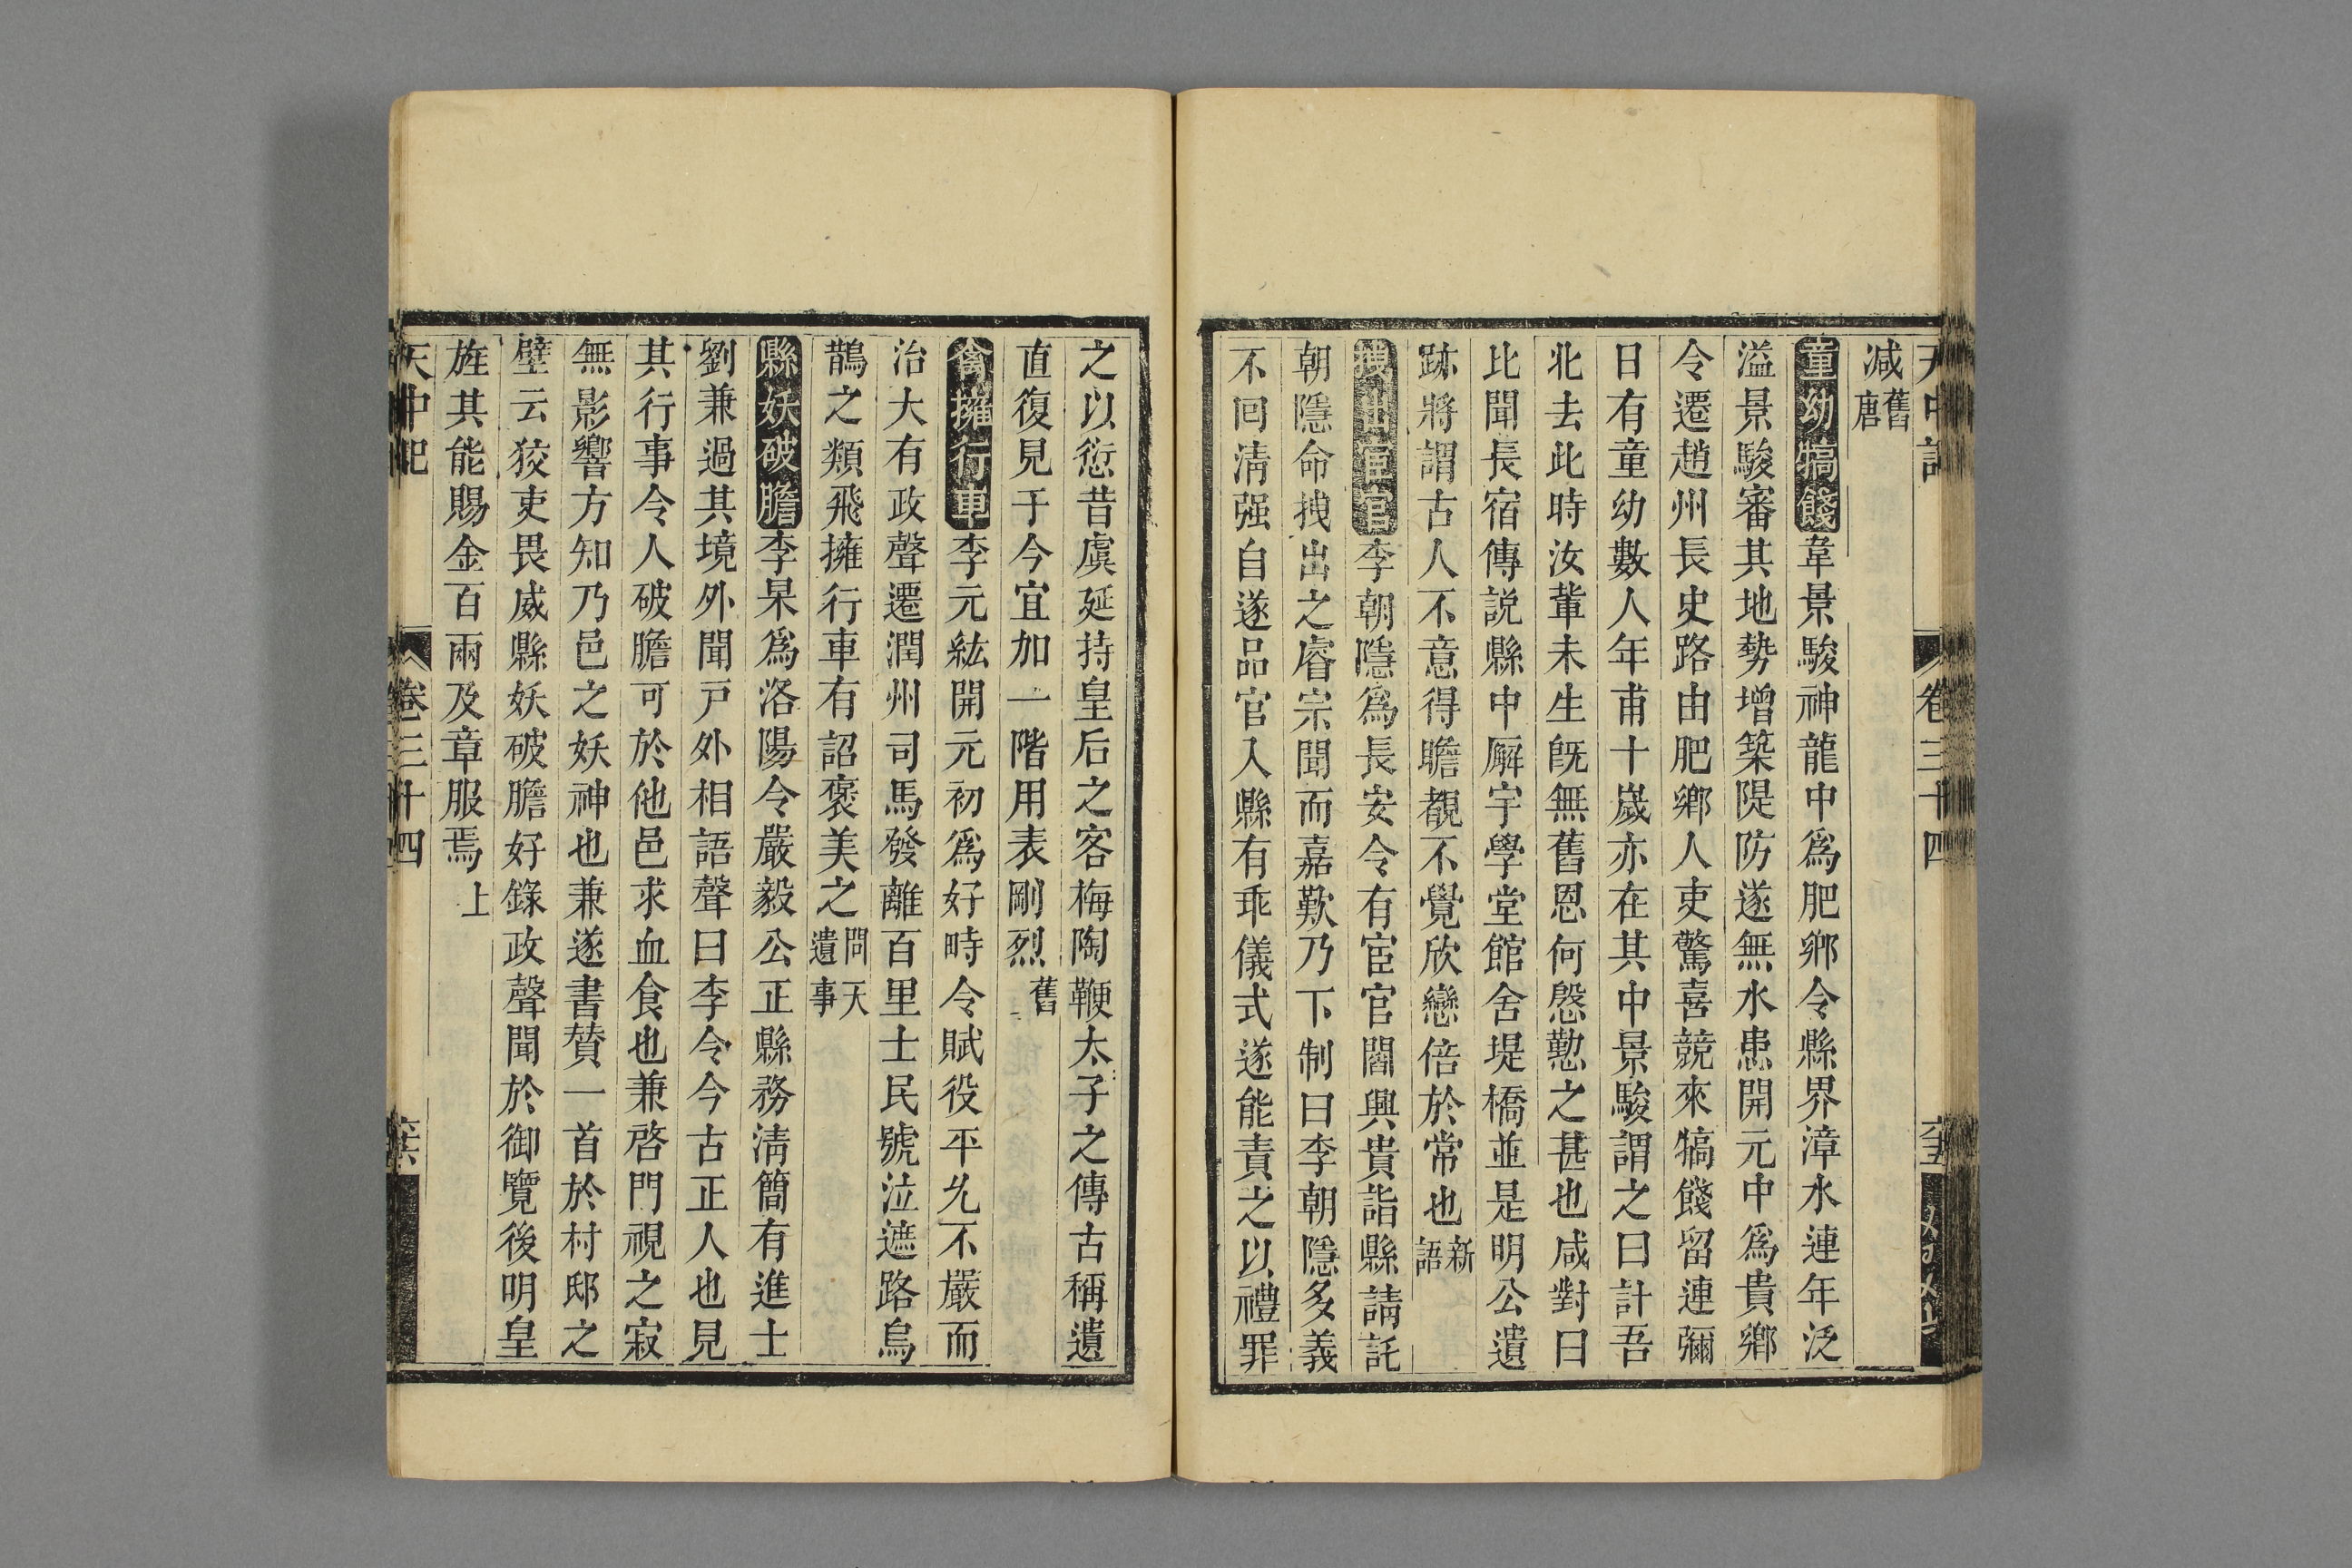 天中記 卷三十四
減舊唐
童幼犒餞韋景駿神龍中爲肥鄉令縣界漳水連年泛
溢景駿審其地勢增築隄防遂無水患開元中爲貴鄉
令遷趙州長史路由肥鄉人吏驚喜競來犒餞留連彌
日有童幼數人年甫十嵗亦在其中景駿謂之曰計吾
北去此時汝輩未生旣無舊恩何慇懃之甚也咸對曰
比聞長宿傳説縣中廨宇學堂館舍堤橋並是明公遺
跡將謂古人不意得瞻覩不覺欣戀倍於常也新語
拽出宦官李朝隱爲長安令有宦官閻興貴詣縣請託
朝隱命拽出之睿宗聞而嘉歎乃下制曰李朝隱多義
不回淸强自遂品官入縣有乖儀式遂能責之以禮罪
之以愆昔虞延持皇后之客梅陶鞭太子之傅古稱遺
直復見于今宜加一階用表剛烈舊
禽擁行車李元紘開元初爲好畤令賦役平允不嚴而
治大有政聲遷潤州司馬發離百里士民號泣遮路烏
鵲之類飛擁行車有詔褒美之開天遺事
縣妖破膽李杲爲洛陽令嚴毅公正縣務淸簡有進士
劉兼過其境外聞戸外相語聲曰李令今古正人也見
其行事令人破膽可於他邑求血食也兼啓門視之寂
無影響方知乃邑之妖神也兼遂書賛一首於村邸之
壁云狡吏畏威縣妖破膽好錄政聲聞於御覽後明皇
旌其能賜金百兩及章服焉上
天中記 卷三十四